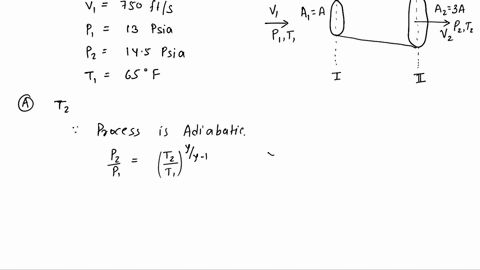 V₁ = 750 ft/s
P₁ = 13 Psia
P₂ = 14.5 Psia
T₁ = 65° F
V₁
P₁, T₁
A₁ = A
A₂ = 3A
P₂, T₂
V₂
I
II
Ⓐ T₂
∵ Process is Adiabatic.
P₂/P₁ = (T₂/T₁)^(γ/γ-1)